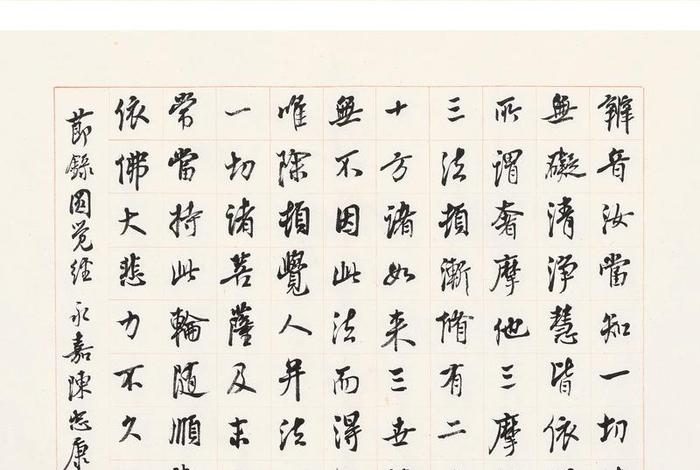 辨音汝當知一切
無礙清淨慧皆依
所謂奢摩他三摩
三法頓漸脩有二
十方諸如来三世
無不因此法而得
唯除頓覺人并法
一切諸菩薩及末
常當持此輪隨順
依佛大悲力不久
節錄圆觉經永嘉陳忠康